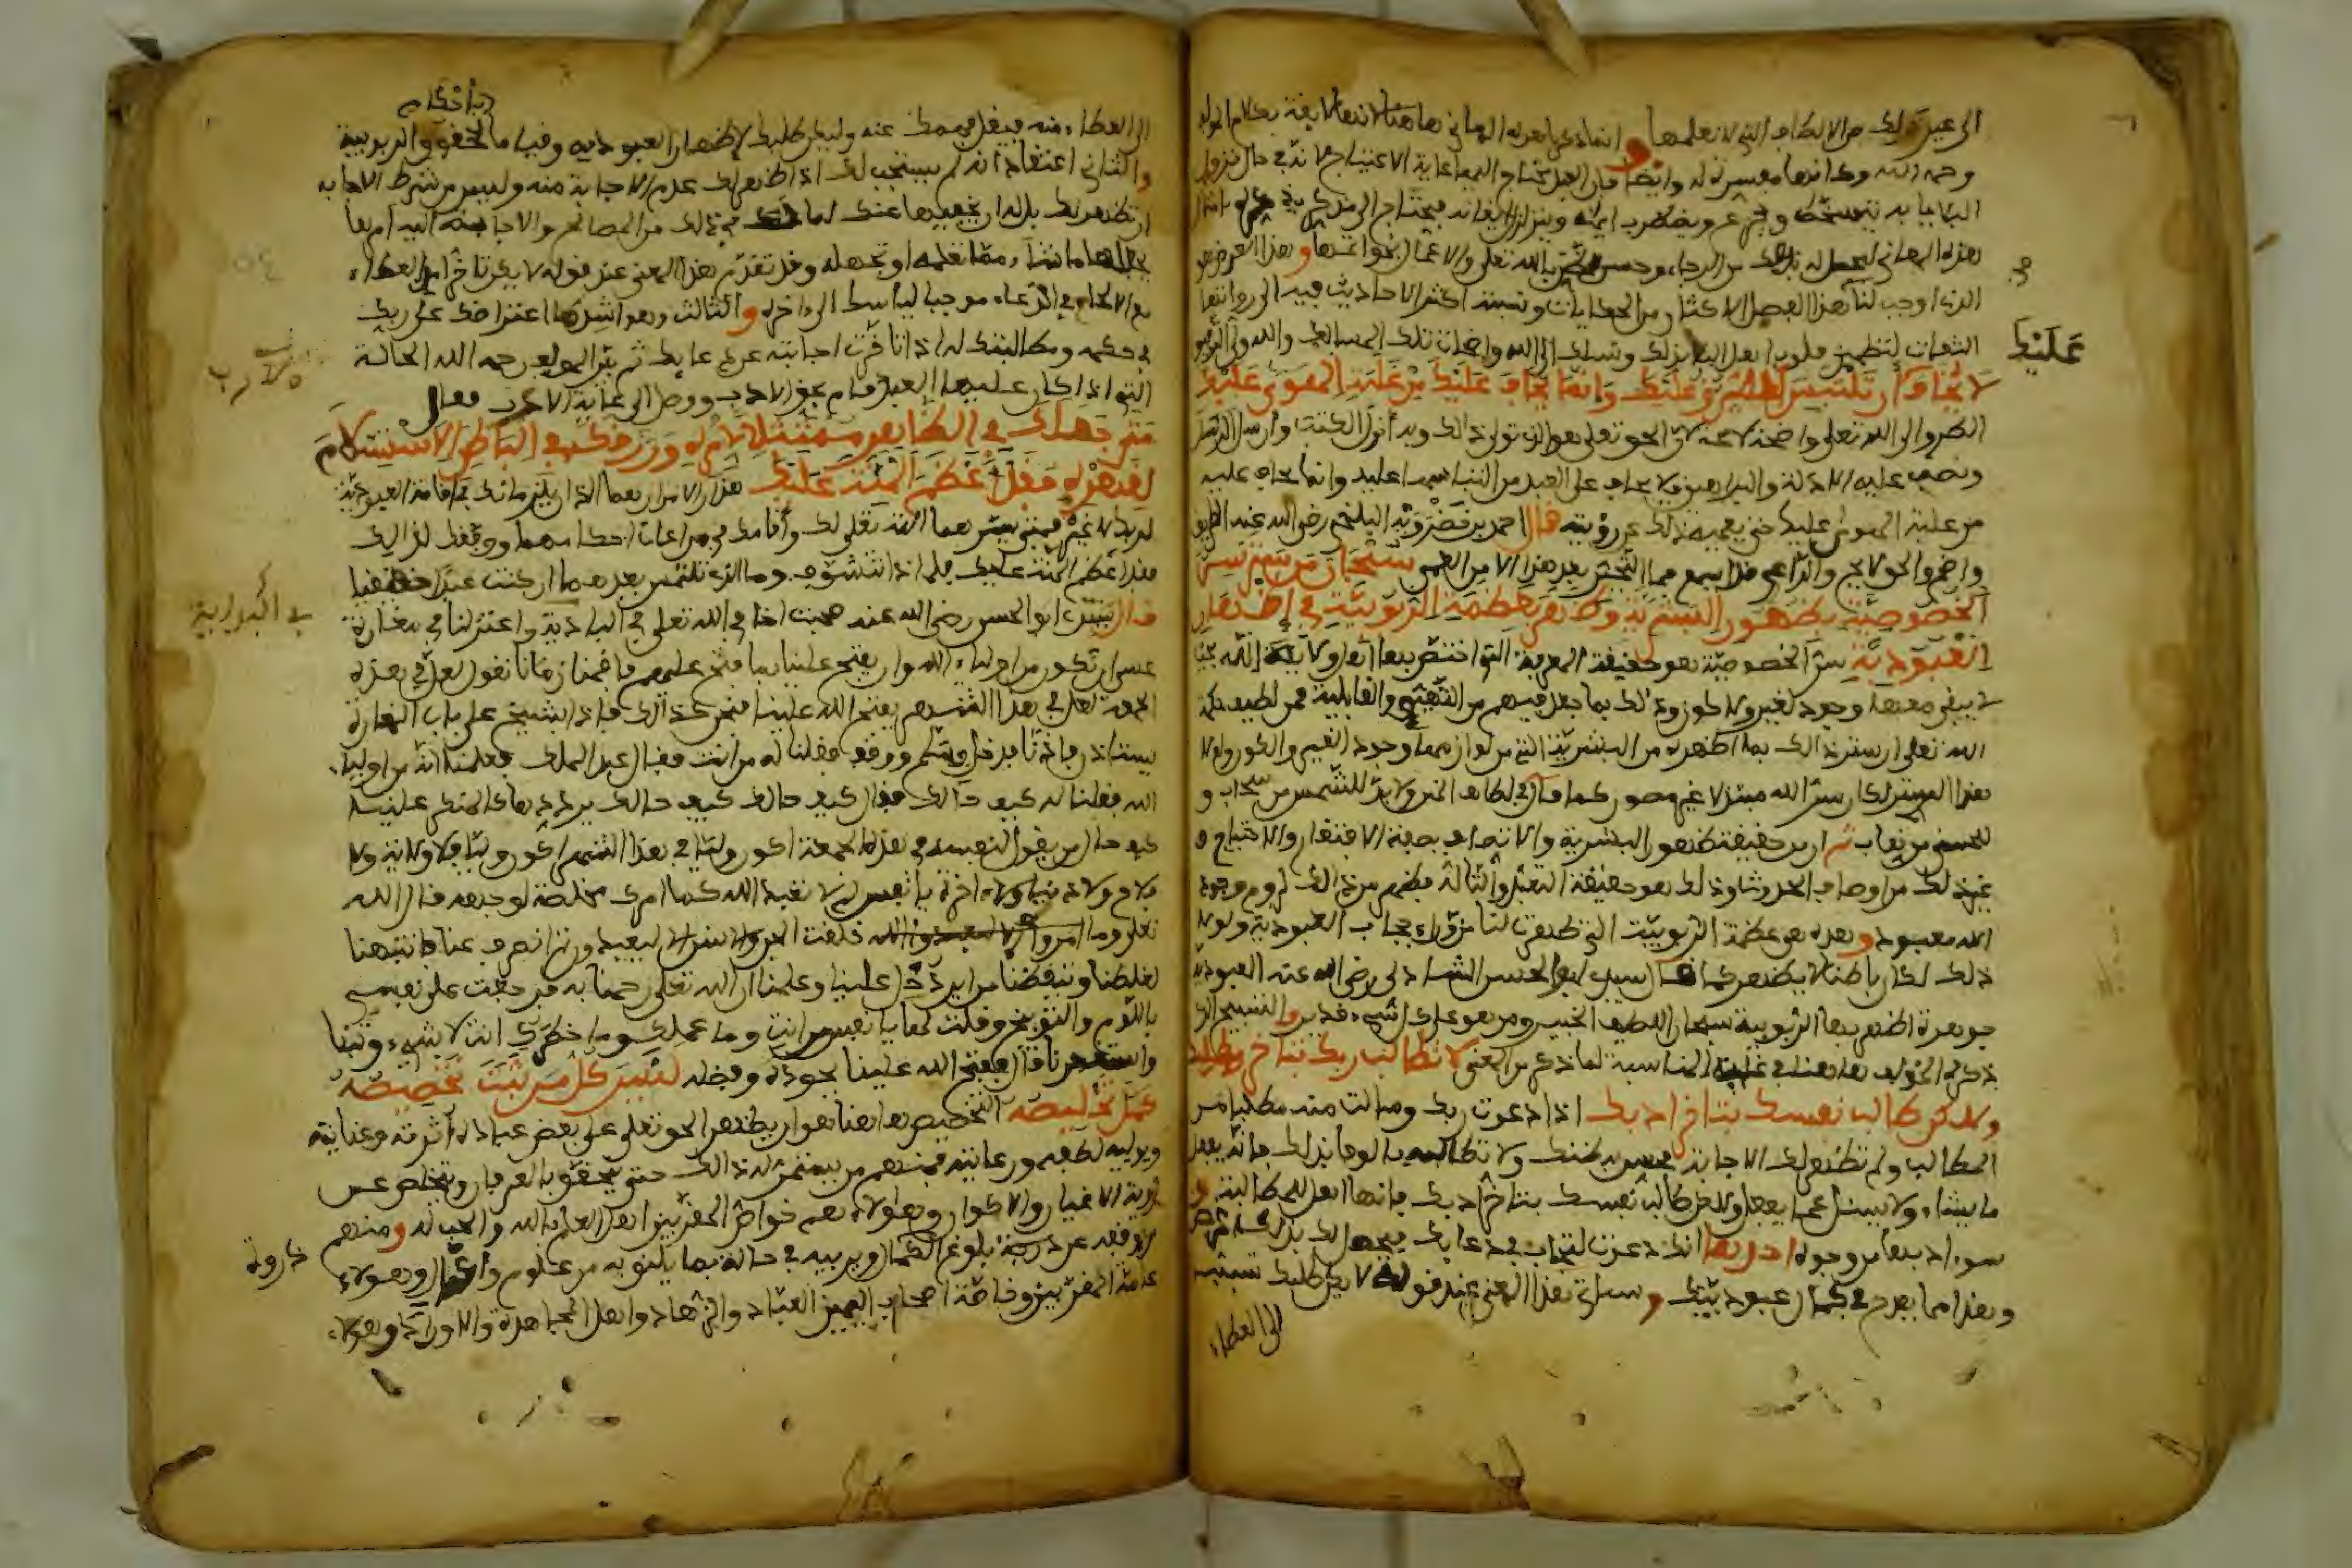 الى غير ذلك من الالطاف التي لا نعلمها وانما ذكرنا هذه المعاني هاهنا لانها لايقة بكلام المولف
رحمه الله وكانها مفسرة له وايضا فان العبد يحتاج اليها غاية الاحتياج لانه في حال نزول
البلايا به يتسخط ويجزع ويضطرب ايمانه ويتزلزل ايقانه فيحتاج الى مذكر
هذه المعاني ليحصل له بذلك من الرجاء وحسن الظن بالله تعلى والاعمال
الذي اوجب لنا هذا الفصل الاكثار من الحكايات ونسبة اكثر الاحاديث فيه الى رواتها
الثقات لتطمين قلوب اهل البلا بذلك وسلك الى الله واضحات تلك المسالك والله ولي التوفيق
لا يخاف ان تلتبس الطرق عليك وانما يخاف عليك من غلبة الهوى عليك
الطرق الى الله تعلى واضحة لايحة لان الحق تعلى هو الذي تولى ذلك وبه انزل الكتب وارسل الرسل
ونصب عليه الادلة والبراهين فلا يخاف على العبد من التباسها عليه وانما يخاف عليه
من غلبة الهوى عليه حتى يعميه ذلك عن رؤيته قال احمد بن خضرويه البلخي رضي الله عنه الطريق
واضح والحق لايح والداعي قد اسمع فما التحير بعد هذا الا من العمى سبحان من ستر سر
الخصوصية بظهور البشرية وظهر بعظمة الربوبية في اظهار
العبودية سر الخصوصية هو حقيقة المعرفة التي اختص بها اهل ولاية الله
لا يبقى معها وجود لغير ولا كون وذلك بما جعل فيهم من التهيي والقابلية فمن لطيف حكمة
الله تعلى ان ستر ذلك بما اظهره من البشرية التي من لوازمها وجود الغير والكون ولولا
هذا الستر لكان سر الله مبتذلا غير مصون كما قال في لطايف المنن ولا بد للشمس من سحاب و
للحسن من نقاب ثم ان من حقيقة ظهور البشرية والاتصاف بصفة الافتقار والاحتياج و
غير ذلك من اوصاف الحدوث اذ ذلك هو حقيقة التعبد والتالة فظهر من ذلك لزوم وجود
الله معبود وهذه هي عظمة الربوبية التي ظهرت لنا من وراء حجاب العبودية ولولا
ذلك لكان باطنا لا يظهر كما قال سيدي ابو الحسن الشاذلي رضي الله عنه العبودية
جوهرة اظهر بها الربوبية سبحان اللطيف الخبير ومن هو على كل شيء قدير والتسبيح الذي
ذكره المولف هاهنا في غاية المناسبة لما ذكر من المعنى لا تطالب ربك بتاخر مطلبك
ولاكن طالب نفسك بتاخر ادبك اذا دعوت ربك وسالت منه مطلبا من
المطالب ولم تظهر لك الاجابة فحسن به ظنك ولا تطالبه بالوفا بذلك فانه يفعل
ما يشاء ولا يسئل عما يفعل ولاكن طالب نفسك بتاخر ادبك فانها اهل للمطالبة و
سوء ادبها من وجوه احدها انك دعوت لتجاب في دعايك فيحصل لك بذلك غرض
وهذا مما يقدح في كمال عبوديتك وسياتي هذا المعنى عند قوله لا يكن طلبك تسببا
الى العطاء
عليك
الى العطاء منه فيقل فهمك عنه وليكن طلبك لاظهار العبودية وقياما بحقوق الربوبية
باحكام
والثاني اعتقاد انه لم يستجب لك اذا ظهر لك عدم الاجابة منه وليس من شرط الاجابة
ان تظهر لك بل له ان يخفيها عنك لما في ذلك من المصالح والاجابة اليه امرها
يجعلها ما شاء مما تعلمه او تجهله وقد تقدم هذا المعنى عند قوله لا يكن تاخر امد العطاء
مع الالحاح في الدعاء موجبا لياسك الى اخره والثالث وهو اشدها اعتراضك على ربك
في حكمه ومطالبتك له اذا تاخرت اجابته عن دعايك ثم بين المولف رحمه الله الحالة
التي اذا كان عليها العبد قام بحق الادب ووصل الى غاية الارب فقال
متى جعلك في الظاهر ممتثلا لامره ورزقك في الباطن الاستسلام
لقهره فقد اعظم المنة عليك هذان الامران هما اللذان يلزمانك في اقامة العبودية
لربك لا غير فمتى يسرهما الله تعلى لك واقامك في مراعات احكامهما ووفقك لذلك
فقد اعظم المنة عليك فلماذا تتشوف وما الذي تلتمس بعدهما ان كنت عبدا حقيقيا
قال سيدي ابو الحسن رضي الله عنه صحبت اخا في الله تعلى في البادية واعتزلنا في مغارة
عسى ان نكون من اولياء الله وان يفتح علينا بما فتح عليهم فاقمنا زمانا نقول لعل في هذه
الجمعة لعل في هذا الشهر يفتح الله علينا فنحن كذلك فاذا بشيخ على باب المغارة
يستاذن فاذنا فدخل وسلم ووقف فقلنا له من انت فقال عبد الملك فعلمنا انه من اولياء
الله فقلنا له كيف حالك فقال كيف حالك كيف حالك يرددها كالمنكر علينا
كيف حال من يقول لنفسه في هذه الجمعة اكون وليا في هذا الشهر اكون وليا فلا ولاية ولا
فلاح ولا دنيا ولا اخرة يا نفس لم لا تعبد الله كما امرك مخلصة لوجهه قال الله
تعلى وما خلقت الجن والانس الا ليعبدون ثم انصرف عنا فانتبهنا
لغلطنا وتيقظنا من اين دخل علينا وعلمنا ان الله تعلى رحمنا به فرجعت على نفسي
باللوم والتوبيخ وقلت لها يا نفس من انت وما عملك وما خطرك انت لا شيء وتبنا
واستغفرنا قال ففتح الله علينا بجوده وفضله ليس كل من ثبت تخصيصه
كمل تخليصه التخصيص هاهنا هو ان يظهر الحق تعلى على بعض عباده اثرته وعنايته
ويوليه لطفه ورعايته فمنهم من يستمر له ذلك حتى يتحقق بالعرفان ويتخلص عن
رؤية الاغيار والاكوان وهولاء هم خواص المقربين اهل العلم بالله والحب له ومنهم
من وقفه عن درجة بلوغ الكمال ويربيه في حالة بما يليق به من علوم واعمال وهولاء
عامة المقربين وخاصة اصحاب اليمين العباد والزهاد واهل المجاهدة والاوراد وهولاء